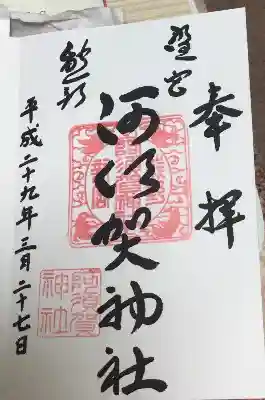 奉拝
熊野
阿須賀神社
平成二十九年三月二十七日
阿須賀
神社